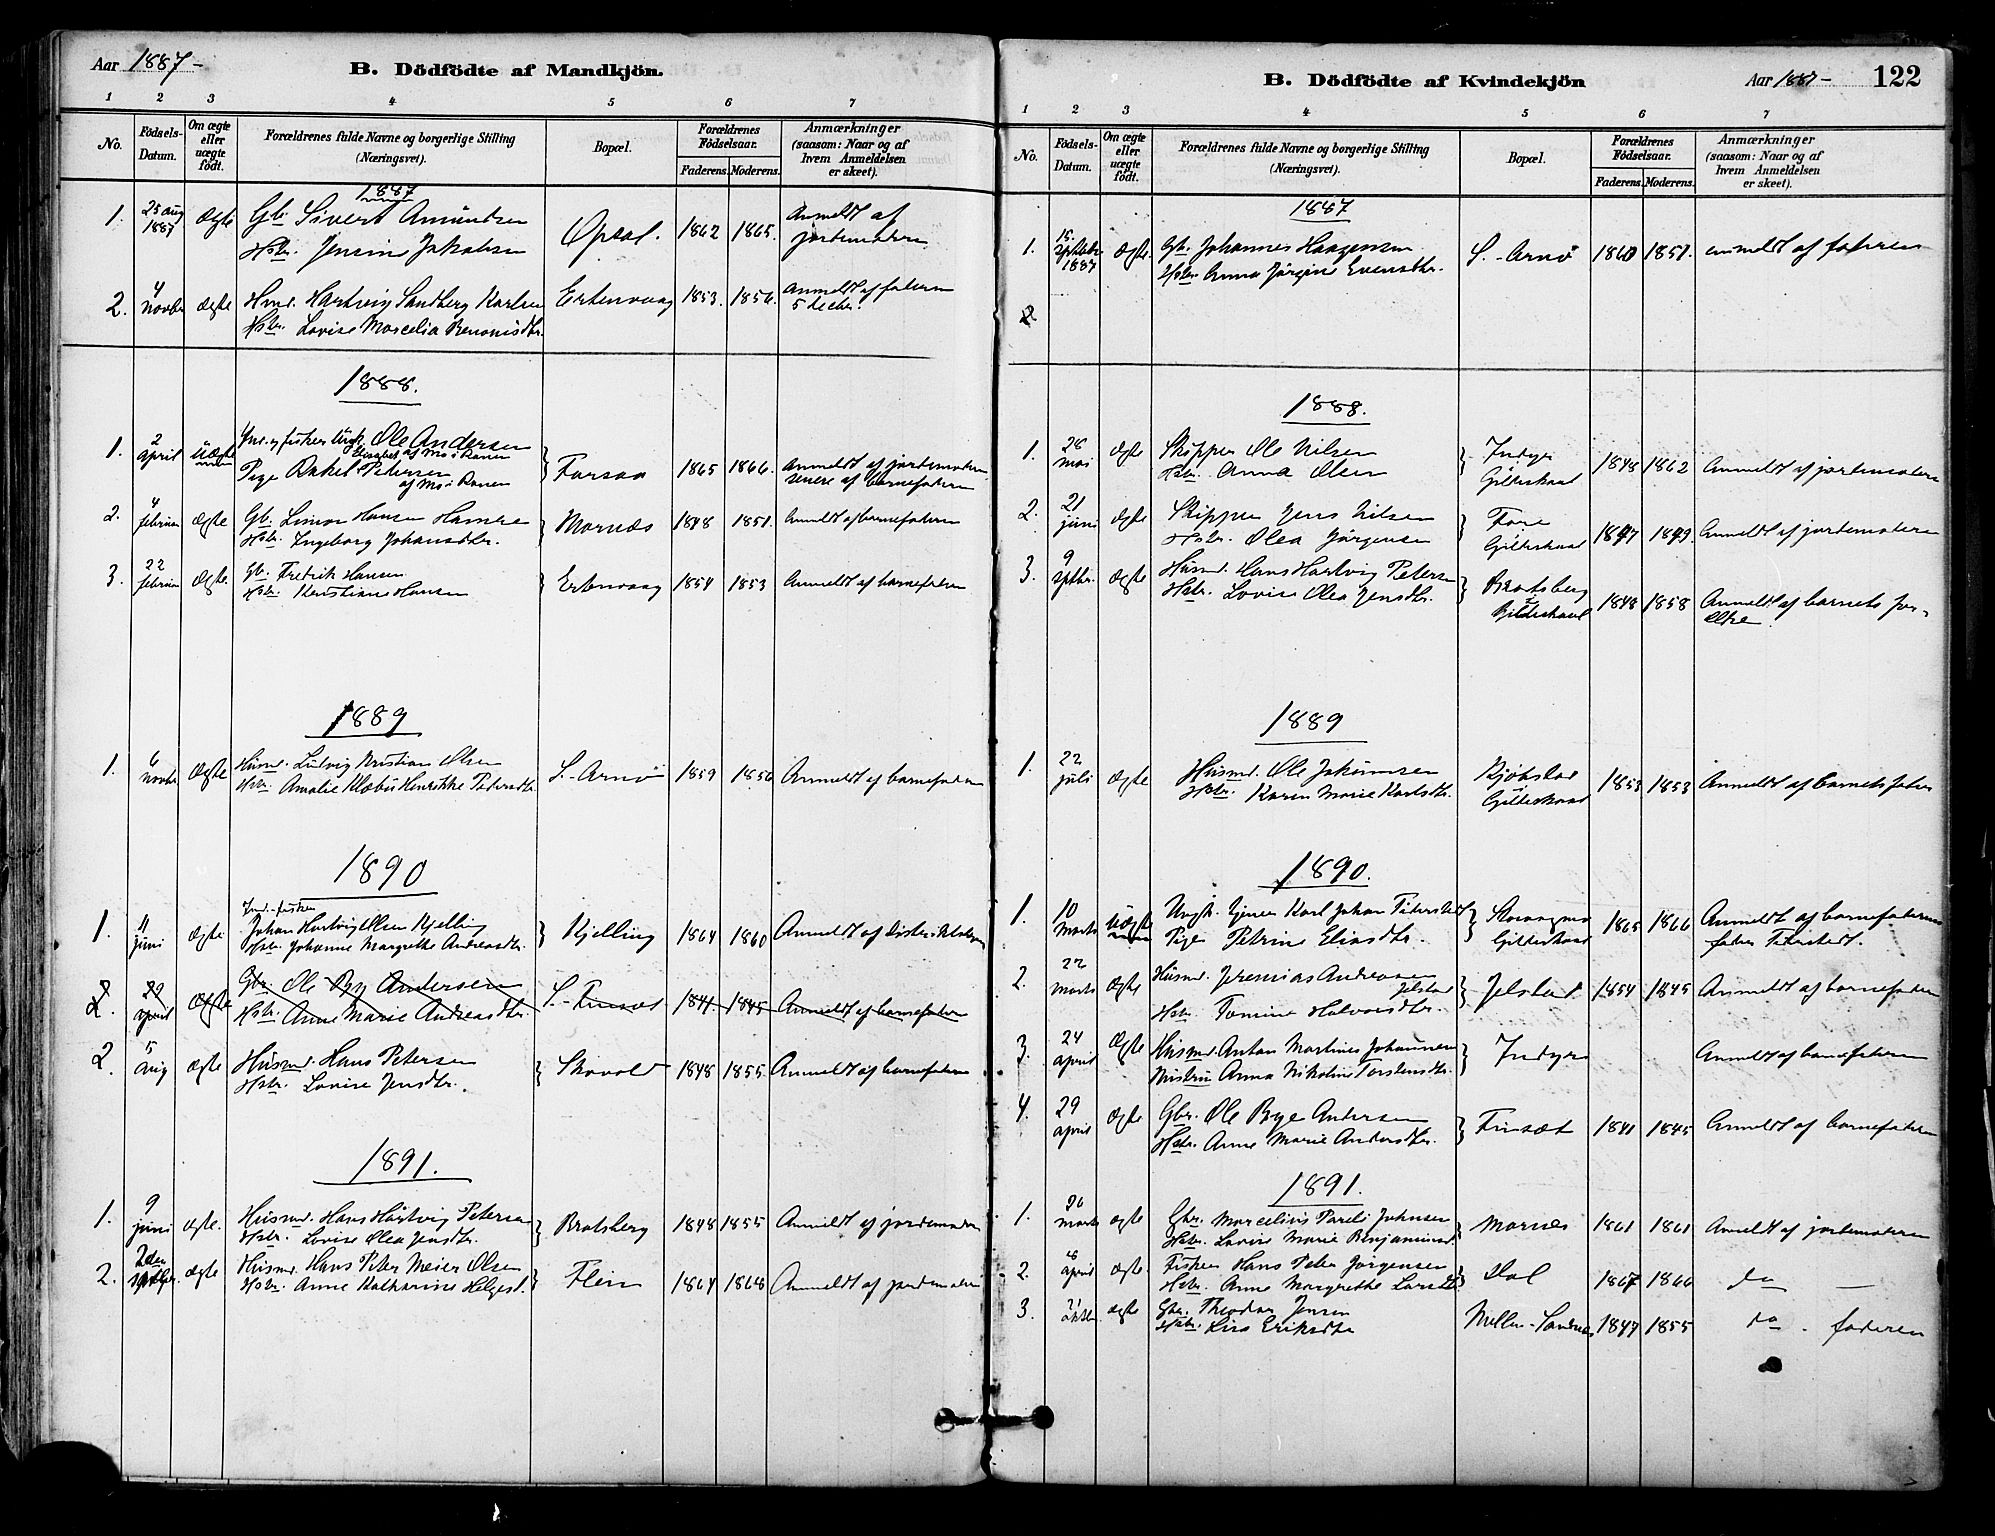 Aar 1887-
B. Dödfödte af Mandkjön.
1 2 3 4 5 6 7
No. Födsels-Datum. Om ægte eller uægte födt. Forældrenes fulde Navne og borgerlige Stilling (Næringsvei). Bopæl. Forældrenes Födselsaar. Faderens. Moderens. Anmærkninger (saasom: Naar og af hvem Anmeldelsen er skeet).
1887
1. 25 aug 1887 Ægte Gb. Sivert Amundsen Opsal. 1862 1865. Anmeldt af
Hstr. Jensine Jakobsen jordemoderen
2. 4 novbr ægte Hmd. Hartvig Sandberg Karlsen Ertenvaag 1853. 1856. anmeldt af faderen
Hstr. Lovise Marcelia Benonisdtr. 5 decbr.
1888.
1. 2 april Uægte Ole Andersen
af Mo i Ranen
Pige Petersen Forsaa 1865 1866. Anmeldt af jordemoderen
af Mo i Ranen senere af barnefaderen
2. 4 februar ægte Gb. Simon Hansen Hamre Mornæs 1848 1851. Anmeldt af barnefaderen
Hstr. Ingeborg Johansdtr.
3. 22 februar ægte. Gb. Fredrik Hansen Ertenvaag 1854 1853 Anmeldt af barnefaderen
Hstr. Kristiane Hansen
1889
1. 6 novbr. Ægte Husmd. Ludvig Kristian Olsen S.-Arnö 1859 1856 Anmeldt af barnefaderen
Hstr. Amalie Klæbu Henrikke Pedersdtr.
1890
Ind. fisker
1. 11 juni ægte Johan Hartvig Olsen Kjelling Kjelling 1864 1860 Anmeldt af
Hstr. Johanne Margrethe Andreasdtr.
2. 29 april Ægte Gbr. Ole By Andersen S.-Finset 1841. 1845 Anmeldt af barnefaderen
Hstr. Anne Marie Andreasdtr.
2. 5 aug ægte Husmd. Hans Petersen Skovold 1848 1855. Anmeldt af barnefaderen
Hstr. Lovise Jensdtr.
1891.
1. 9 juni ægte. Husmd. Hans Hartvig Petersen Bratsberg 1848 1855 Anmeldt af jordemoderen
Hstr. Lovise Olea Jensdtr.
2. 2den ægte Husmd. Hans Peter Meier Olsen Flein 1864 1868 Anmeldt af jordemoderen
Hstr. Anne Katharine Helgesd.
B. Dödfödte af Kvindekjön
Aar 1887- 122
1 2 3 4 5 6 7
No. Födsels-Datum. Om ægte eller uægte födt. Forældrenes fulde Navne og borgerlige Stilling (Næringsvei). Bopæl. Forældrenes Födselsaar. Faderens. Moderens. Anmærkninger (saasom: Naar og af hvem Anmeldelsen er skeet).
1887
1. 15 1887 ægte. Gb. Johannes Haagensen S.-Arnö 1860 1857. anmeldt af faderen
Hstr. Anna Jörgine Evensdtr.
2
1888.
1. 28 mai ægte Skipper Ole Nilsen Indyr 1848 1862 Anmeldt af jordemoderen
Hstr. Anna Olsen Gildeskaal
2. 21 juni ægte Skipper Jens Nilsen Fore 1847 1849. Anmeldt af jordemoderen
Hstr. Olea Jörgensen Gildeskaal
3. 9 septbr. ægte Husmd. Hans Hartvig Petersen Bratsberg 1848 1858 Anmeldt af barnets for-
Hstr. Lovise Olea Jensdtr. i Gildeskaal ældre.
1889
1. 22 juli ægte Husmd. Ole Johannesen Kjöbstad 1853 1853 Anmeldt af barnets fader
Hstr. Karen Marie Karlsdtr. Gildeskaal
1890.
1. 10 marts Uægte Ungk. tjener Karl Johan 1865 1866 Anmeldt af barnefaderens
Pige Petrine Eliasdtr. Gildeskaal fader
2. 22 marts ægte Husmd. Jeremias Andreasen Jelstad Jelstad 1854 1845 Anmeldt af barnefaderen
Hstr. Tomine Halvorsdtr.
3. 24 april Ægte Husmd. Anton Martines Johannesen Indyr Anmeldt af barnefaderen
Hustru Anna Nikoline Torstensdtr.
4. 29 april ægte Gbr. Ole Bye Andersen Finset 1841 1845 Anmeldt af barnefaderen
Hstr. Anne Marie Andersdtr.
1891.
1. 26 marts ægte Gbr. Marcelius Pareli Johnsen Mornes 1861 1861 Anmeldt af jordemoderen
Hstr. Lovise Marie Benjaminsd.
2. april ægte Fisker Hans Peder Jörgensen Dal 1867 1866 do —
Hstr. Anne Margrethe Larsdtr
3. 21 oktbr. ægte Gbr. Theodor Jensen Mellem-Sandnes 1847 1855 do. faderen
Hstr. Lisa Eriksdtr